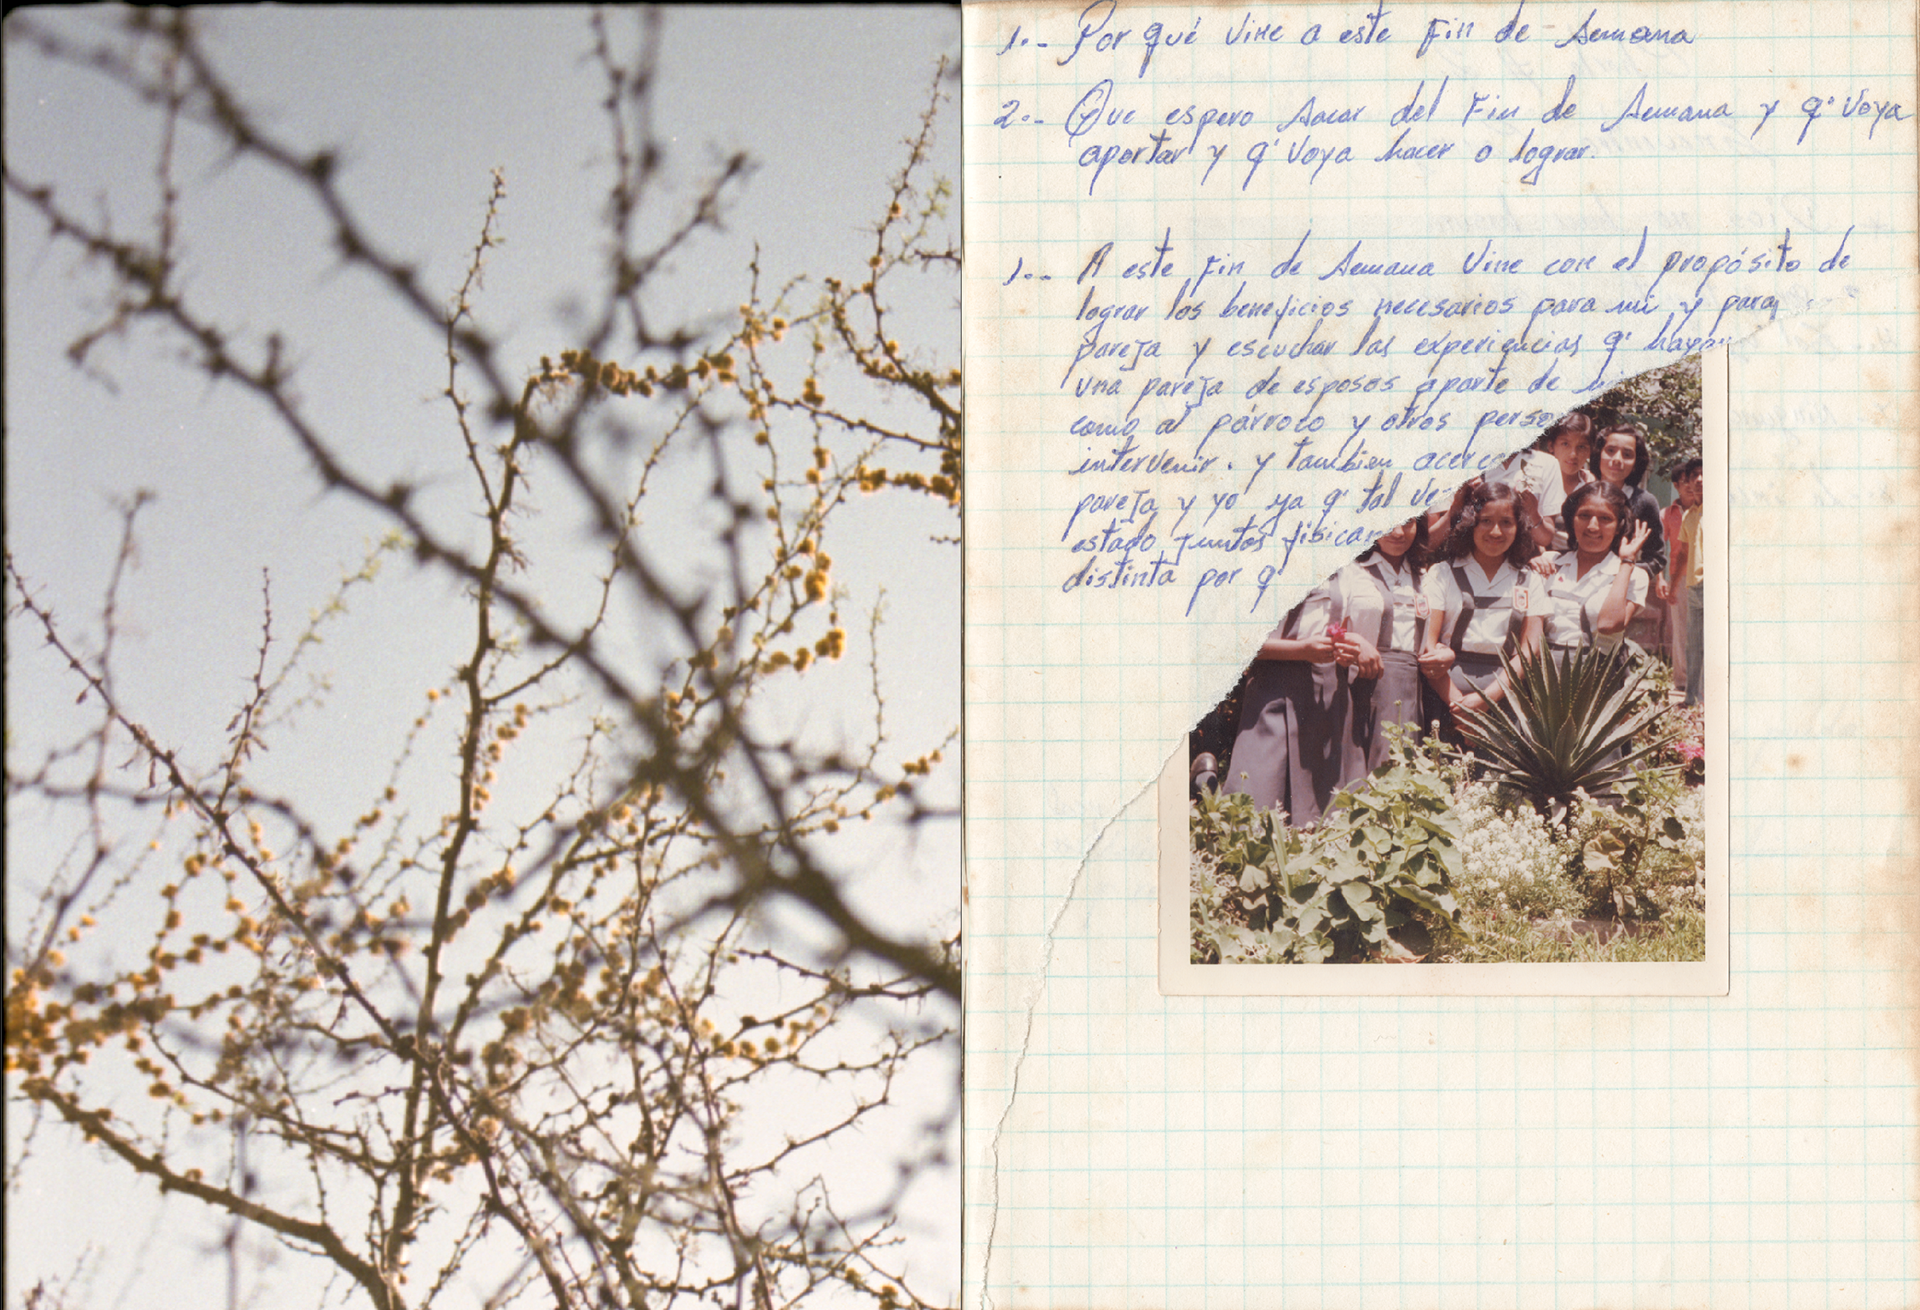 1.- Por qué vine a este Fin de Semana
2.- Que espero sacar del Fin de Semana y q' voya
aportar y q' voya hacer o lograr.
1.- A este Fin de Semana vine con el propósito de
lograr los beneficios necesarios para mi y para
pareja y escuchar las experiencias q' hayan
una pareja de esposos aparte de
como al párroco y otros perso
intervenir. y tambien acerca
pareja y yo ya q' tal ve
estado juntos fisicam
distinta por q'